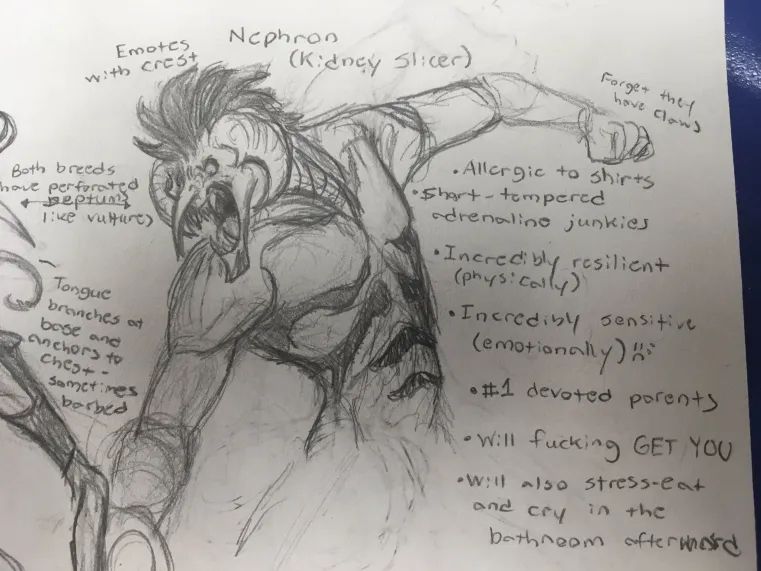 Emotes
with crest
Nephron
(Kidney Slicer)
Forget they
have claws
Both breeds
have perforated
septums
like vulture)
Tongue
branches at
base and
anchors to
chest-
sometimes
barbed
•Allergic to shirts
•Short-tempered
adrenaline junkies
•Incredibly resilient
(physically)
•Incredibly sensitive
(emotionally)
•#1 devoted parents
•Will fucking GET YOU
•Will also stress-eat
and cry in the
bathroom afterward